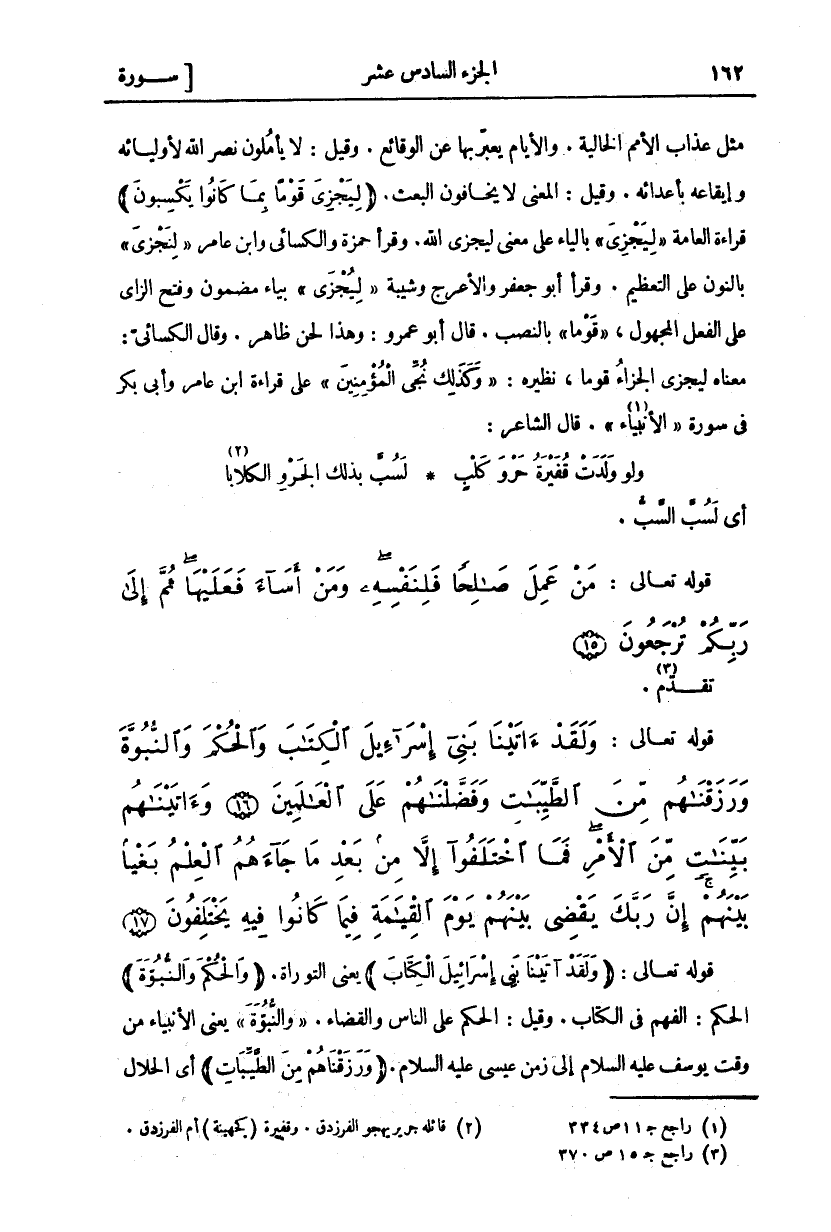 ١٦٢ الجزء السادس عشر [ ســـورة
مثل عذاب الأمم الخالية . والأيام يعبّر بها عن الوقائع . وقيل : لا يأمُلون نصر الله لأوليائه
و إيقاعه بأعدائه . وقيل : المعنى لا يخافون البعث. ﴿ لِيَجْزِىَ قَوْمًا بِمَا كَانُوا يَكْسِبونَ ﴾
قراءة العامة «لِيَجْزِىَ» بالياء على معنى ليجزى الله. وقرأ حمزة والكسائى وابن عامر « لِنَجْزىَ»
بالنون على التعظيم . وقرأ أبو جعفر والأعرج وشيبة « لِيُجْزَى » بياء مضمون وفتح الزاى
على الفعل المجهول ، «قَوْما» بالنصب . قال أبو عمرو : وهذا لحن ظاهر . وقال الكسائىّ :
معناه ليجزى الجزاءُ قوما ، نظيره : « وَكَذَلِكَ نُجِّى الْمُؤْمِنِينَ » على قراءة ابن عامر وأبى بكر
فى سورة « الأنبياء (١) » . قال الشاعر :
ولو ولَدَتْ قُفَيْرَةُ جَرْوَ كلْبٍ * لَسُبَّ بذلك الجَرْوِ الكلابا (٢)
أى لَسُبَّ السَّبُّ .
قوله تعالى : مَنْ عَمِلَ صَـٰلِحًا فَلِنَفْسِهِۦۖ وَمَنْ أَسَآءَ فَعَلَيْهَاۖ ثُمَّ إِلَىٰ
رَبِّكُمْ تُرْجَعُونَ ١٥
تقــدّم (٣) .
قوله تعالى : وَلَقَدْ ءَاتَيْنَا بَنِىٓ إِسْرَـٰٓءِيلَ ٱلْكِتَـٰبَ وَٱلْحُكْمَ وَٱلنُّبُوَّةَ
وَرَزَقْنَـٰهُم مِّنَ ٱلطَّيِّبَـٰتِ وَفَضَّلْنَـٰهُمْ عَلَى ٱلْعَـٰلَمِينَ ١٦ وَءَاتَيْنَـٰهُم
بَيِّنَـٰتٍ مِّنَ ٱلْأَمْرِۖ فَمَا ٱخْتَلَفُوٓا۟ إِلَّا مِنۢ بَعْدِ مَا جَآءَهُمُ ٱلْعِلْمُ بَغْيًۢا
بَيْنَهُمْۚ إِنَّ رَبَّكَ يَقْضِى بَيْنَهُمْ يَوْمَ ٱلْقِيَـٰمَةِ فِيمَا كَانُوا۟ فِيهِ يَخْتَلِفُونَ ١٧
قوله تعالى : ﴿ وَلَقَدْ آتَيْنَا بَنِى إِسْرَائِيلَ الْكِتَابَ ﴾ يعنى التوراة. ﴿ وَالْحُكْمَ وَالنُّبُوَّةَ ﴾
الحكم : الفهم فى الكتاب . وقيل : الحكم على الناس والقضاء . « والنُّبُوَّةَ » يعنى الأنبياء من
وقت يوسف عليه السلام إلى زمن عيسى عليه السلام. ﴿ وَرَزَقْنَاهُمْ مِنَ الطَّيِّبَاتِ ﴾ أى الحلال
(١) راجع جـ ١١ ص ٣٣٤ (٢) قائله جرير يهجو الفرزدق . وقفيرة ( كجهينة ) أم الفرزدق .
(٣) راجع جـ ١٥ ص ٣٧٠